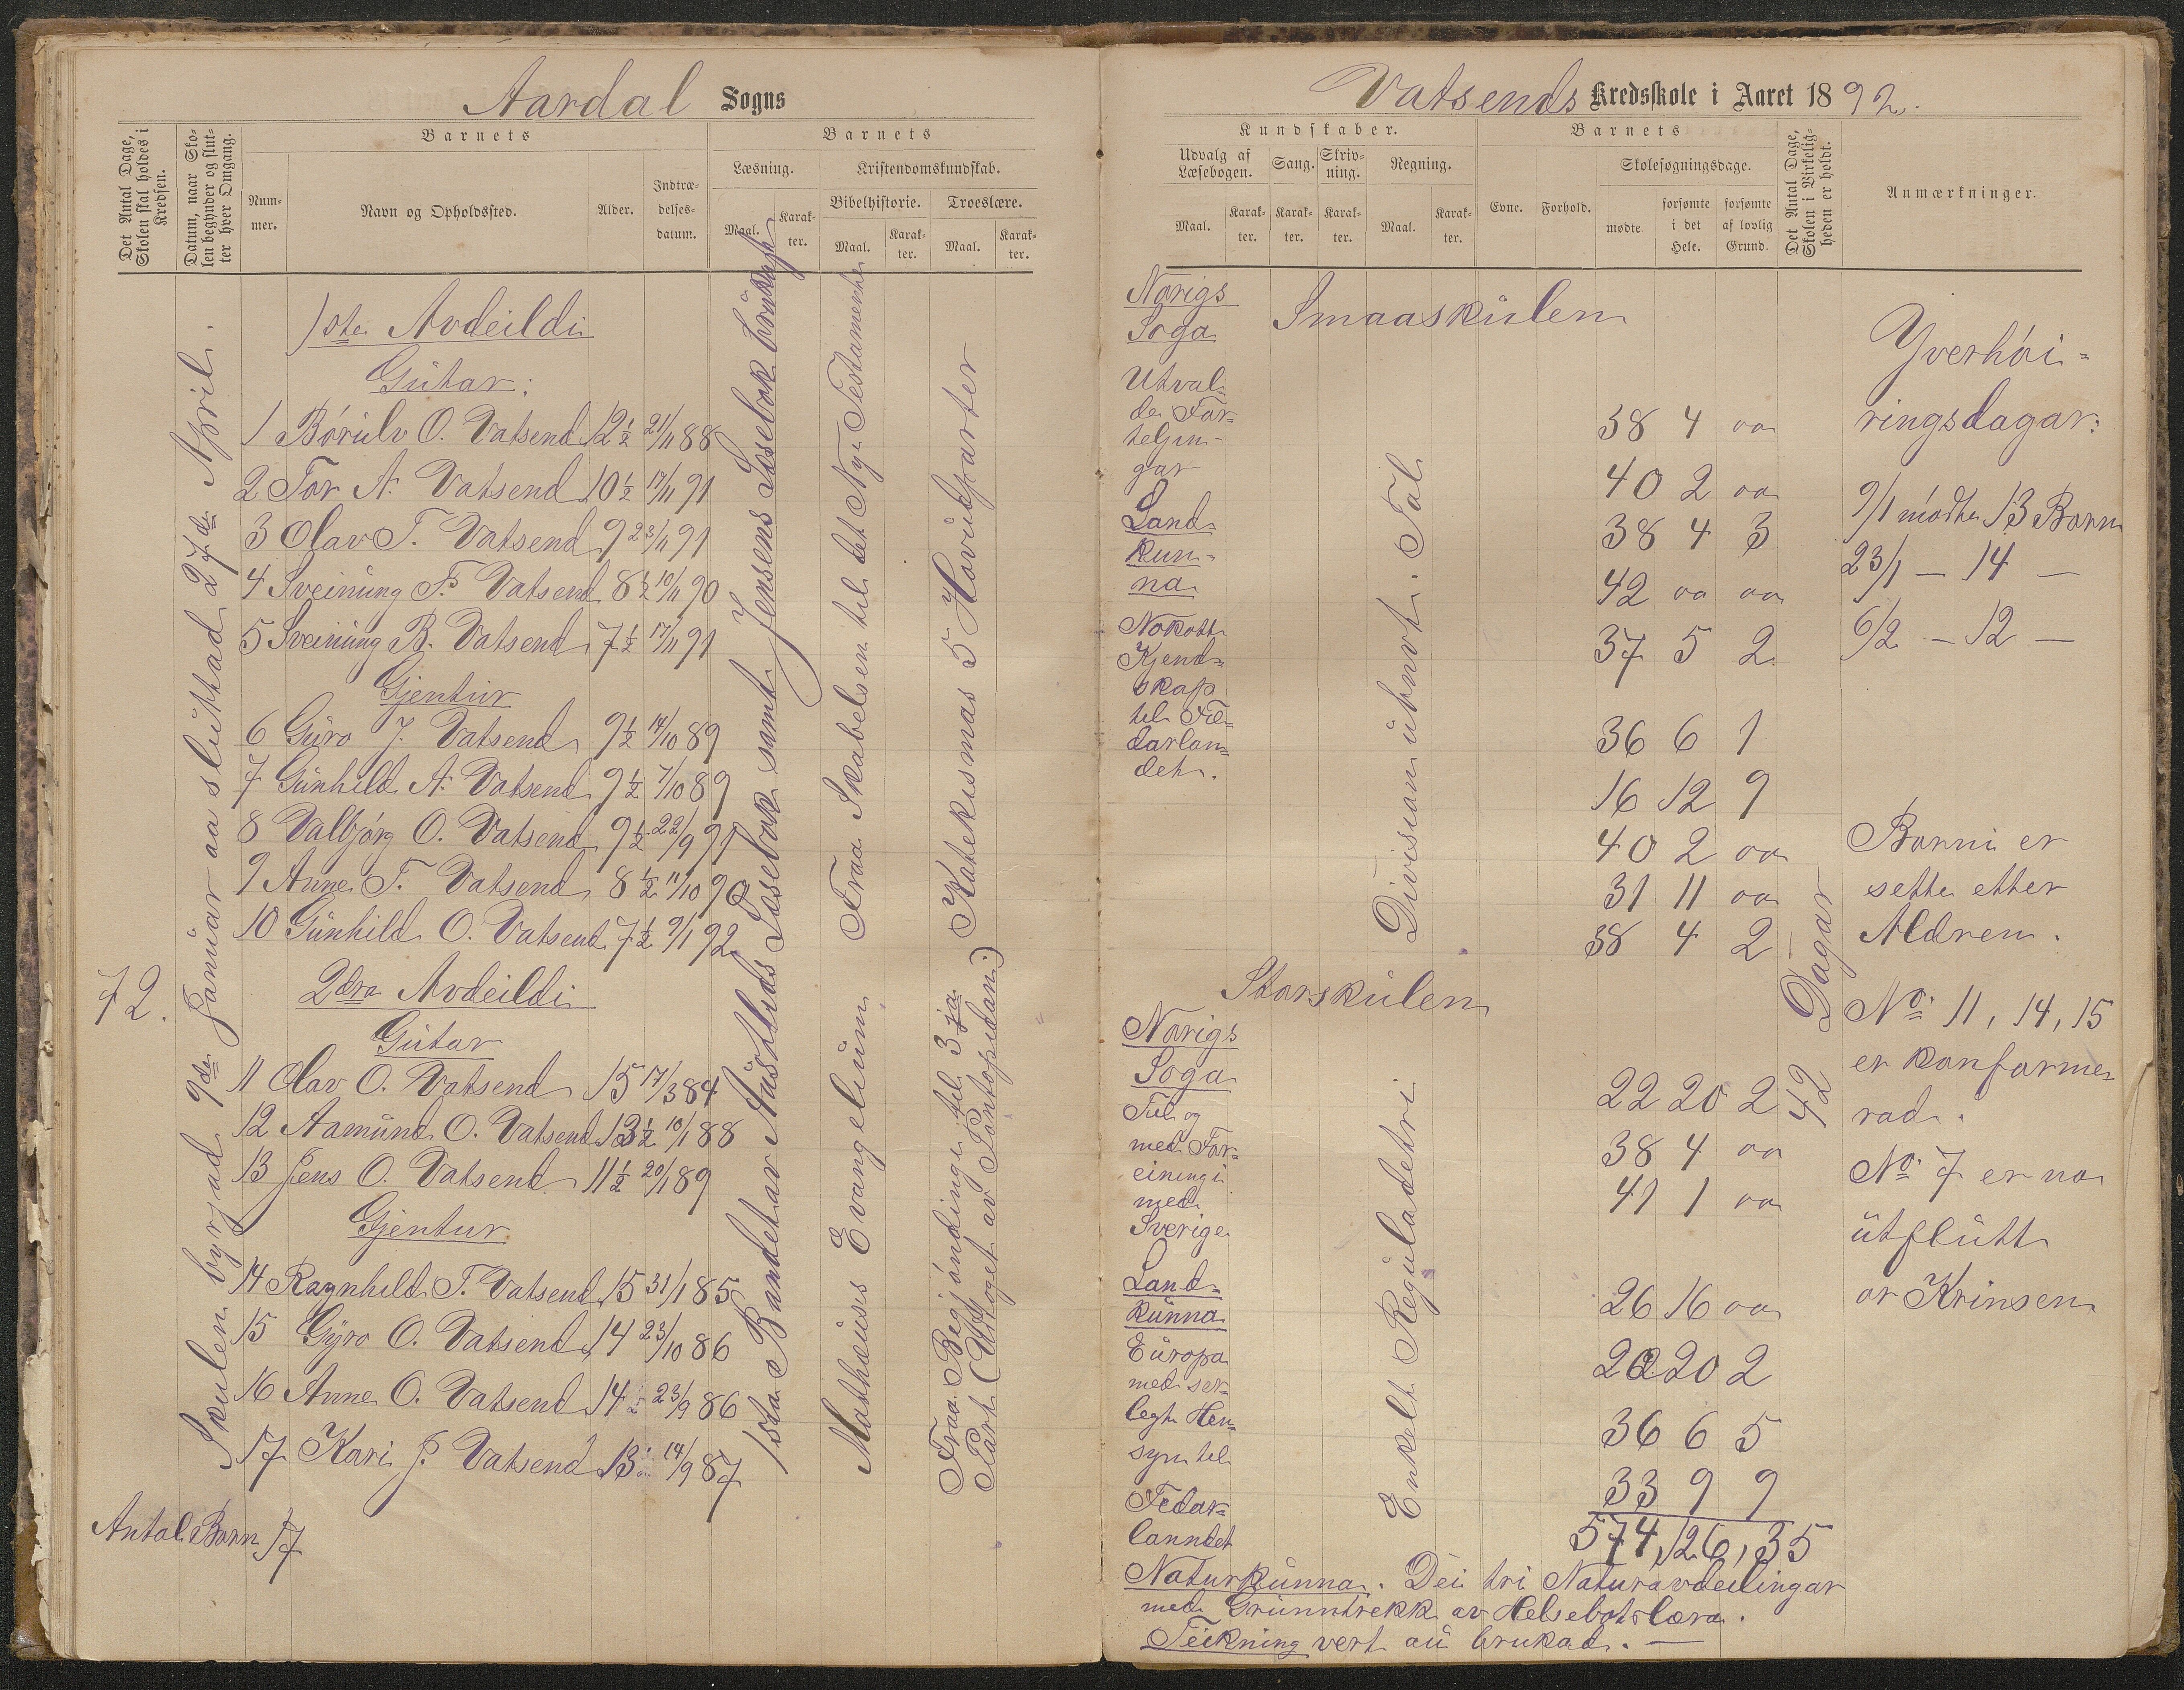 Aardal Sogns
Det Antal Dage, Skolen skal holdes i Kredsen.
Datum, naar Skolen begynder og slutter hver Omgang.
Barnets
Nummer.
Navn og Opholdssted.
Alder.
Indtrædelsesdatum.
Barnets
Læsning.
Maal.
Karakter.
Kristendomskundskab.
Bibelhistorie.
Maal.
Karakter.
Troeslære.
Maal.
Karakter.
72.
Skulen byrjad 9de Januar aa sluttad 27de April.
1ste Avdeildi
Gutar:
1 Børulv O. Vatsend 12½ 21/11 88
2 Tor A. Vatsend 10½ 17/11 91
3 Olav T. Vatsend 9 23/11 91
4 Sveinung F. Vatsend 8½ 10/11 90
5 Sveinung B. Vatsend 7½ 17/11 91
Gjentur
6 Guro J. Vatsend 9½ 14/10 89
7 Gunhild A. Vatsend 9½ 7/10 89
8 Valbjørg O. Vatsend 9½ 22/9 91
9 Anne T. Vatsend 8½ 11/10 90
10 Gunhild O. Vatsend 7½ 9/1 92
2dra Avdeildi
Gutar
11 Olav O. Vatsend 15 17/3 84
12 Aamund O. Vatsend 13½ 10/1 88
13 Jens O. Vatsend 11½ 20/1 89
Gjentur
14 Ragnhild T. Vatsend 15 31/1 85
15 Gyro O. Vatsend 14 23/10 86
16 Anne O. Vatsend 14 23/9 86
17 Kari J. Vatsend 13 14/9 87
Antal Born 17
1sta Bandet av Austlids Læsebok samt Jensens Læsebok brukast
Fraa Skabelsen til det Nye Testamente
Mathæus Evangelium
Katekismas 5 Hovudparter
Fraa Begjøndinge til 3ja
Part (Uttoget av Pontopidan.)
Vatsends Kredsskole i Aaret 1892.
Kundskaber.
Udvalg af Læsebogen.
Maal.
Karakter.
Sang.
Karakter.
Skrivning.
Karakter.
Regning.
Maal.
Karakter.
Barnets
Evne.
Forhold.
Skolesøgningsdage.
mødte
forsømte i det Hele.
forsømte af lovlig Grund.
Det Antal Dage, Skolen i Virkeligheden er holdt.
Anmærkninger.
Smaaskulen
Norigs
Soga
Utval-
de For-
teljin-
gar
Land-
kun-
na
Nokott
Kjend-
skap
til Fe-
darlan-
det.
Division utnvt. Tal
38 4 oo
40 2 oo
38 4 3
42 oo oo
37 5 2
36 6 1
16 12 9
40 2 oo
31 11 oo
38 4 2
Storskulen
Norigs
Soga
Til og
med For-
eining i
med
Sverige
Land-
kunna
Europa
med ser-
legt Hen-
syn til
Fedar-
lanndet
Enkelt Reguladetri
22 20 2
38 4 oo
41 1 oo
26 16 oo
22 20 2
36 6 5
33 9 9
574, 126, 35
42 Dagar
Yverhøi-
ringsdagar:
9/1 mødte 13 Born
23/1 — 14 —
6/2 — 12 —
Borni er
sette etter
Aldren.
No. 11, 14, 15
er konfarme-
rad.
No. 7 er no
utflutt
or Krinsen
Naturkunna. Dei tri Naturavdeilingar
med Grunntrekk av Helsebotslæra.
Teikning vert au brukad. —